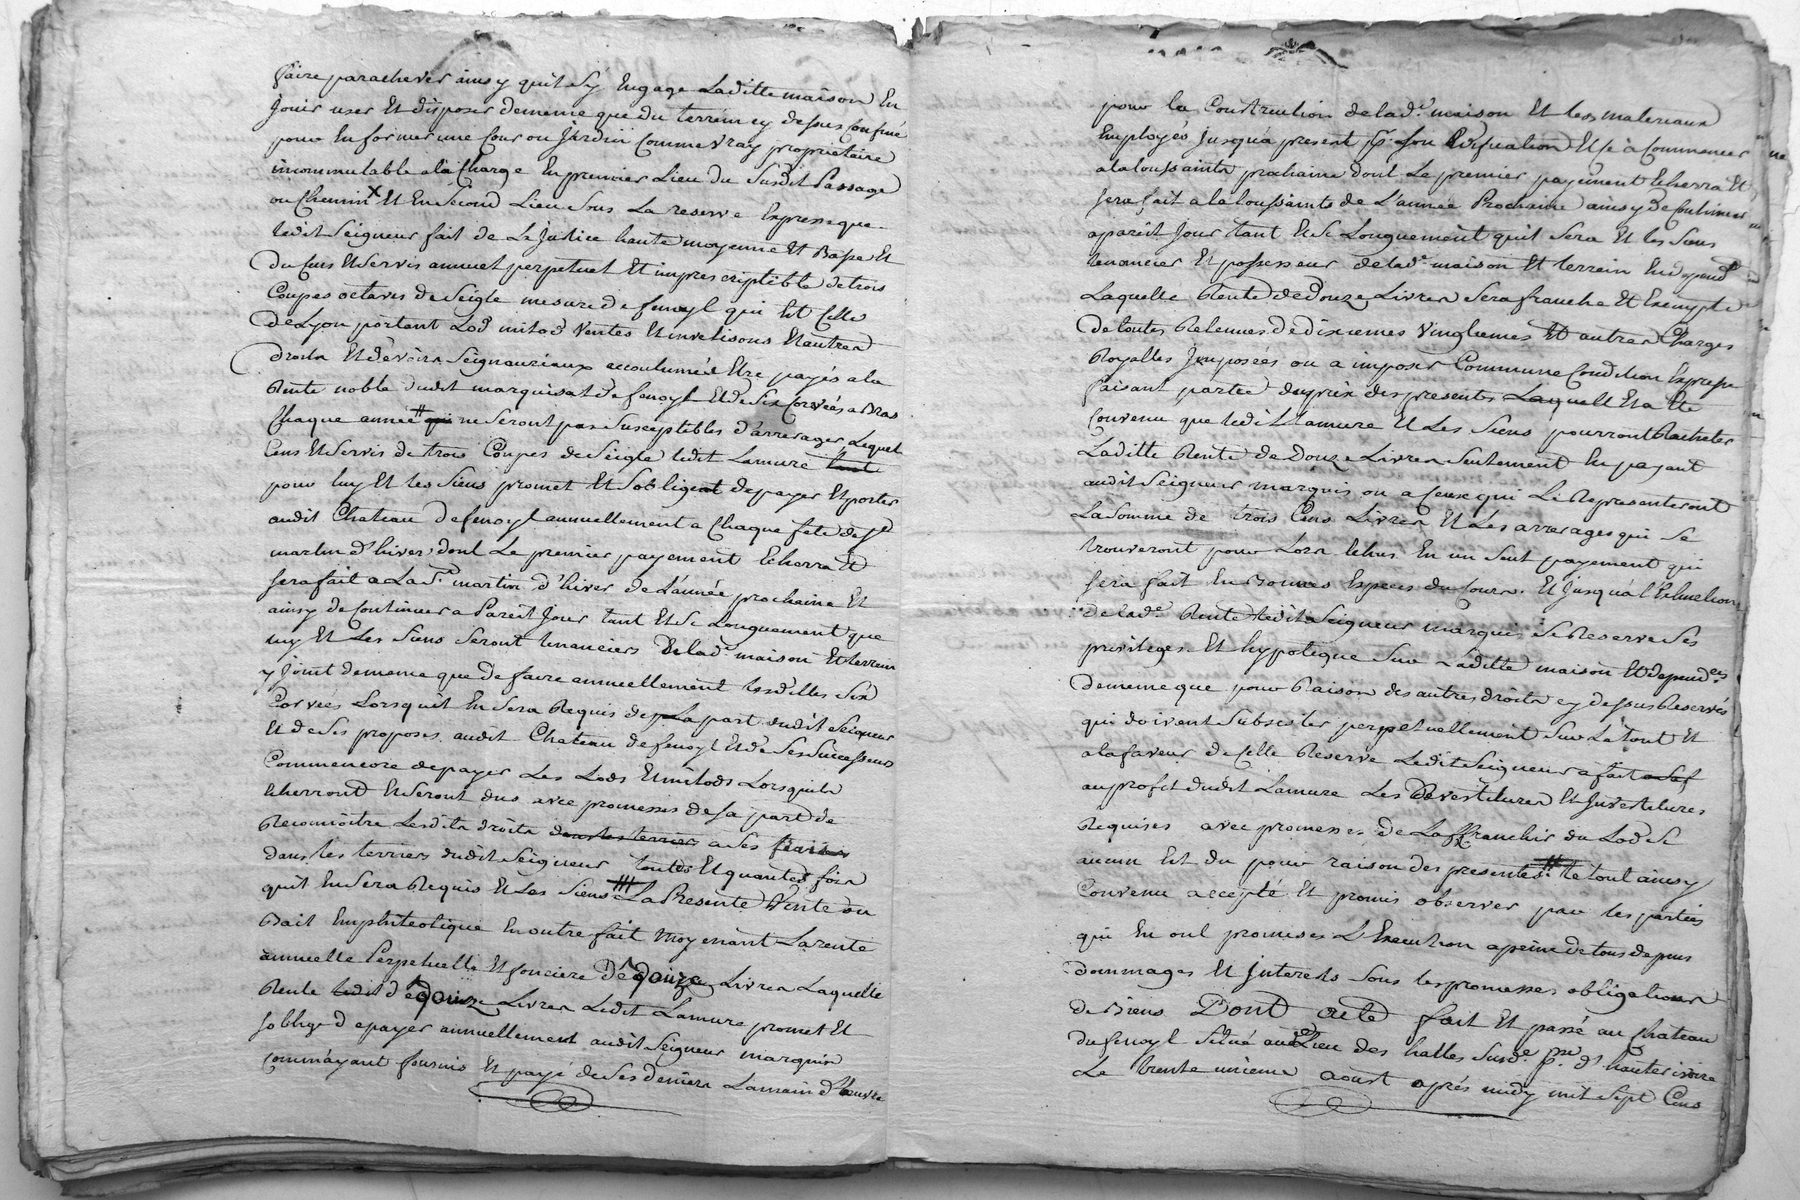 faire parachever ainsy quil s'y Engage Laditte maison En
Jouir user Et disposer demême que du terrein cy dessus Confiné
pour En former une Cour ou Jardin Comme Vray proprietaire
incommutable ala Charge En premier Lieu du Susdit Passage
ou Chemin x Et En Second Lieu Sous La reserve Expresse que
ledit Seigneur fait de La Justice haute moyenne Et Basse Et
du Cens Et Servis annuel perpetuel Et imprescriptible de trois
Coupes octaves de Seigle mesure de fenoyl qui Est Celle
de Lyon portant Lod milod Ventes Et investisons Et autres
droits Et dévoirs Seigneuriaux accoutumés Etre payés ala
Rente noble dudit marquisat de fenoyl Et de Six Corvées a Bras
Chaque année # qui ne Seront pas Susceptibles d'arrerages Lequel
Cens Et Servis de trois Coupes de Seigle ledit Lamure tant
pour luy Et les Siens promet Et Soblige de payer Et porter
audit Chateau de fenoyl annuellement a Chaque fête de St
martin d'hiver, dont Le premier payement Echerra Et
Sera fait a La St martin d'hiver de L'année prochaine Et
ainsy de Continuer a Pareit Jour tant Et Si Longuement que
luy Et Les Siens Seront tenanciers De lad.e maison Et terrein
y Joint demême que de faire annuellement lesdittes Six
Corvées Lorsquil En Sera Requis de La part dudit Seigneur
Et de Ses preposes audit Chateau de fenoyl Et de Ses Successeurs
Comme encore de payer Les Lods Et milods Lorsquils
Echerront Et Seront dus avec promesses de sa part de
Reconnoitre Lesdits droits dans les terriers a Ses fraix
dans les terriers dudit Seigneur toutes Et quantes fois
quil En Sera Requis Et Les Siens # La Presente Vente ou
Bail Emphiteotique En outre fait Moyenant La rente
annuelle Perpetuelle Et fonciere de douze Livres Laquelle
Rente ledit de douze Livres Ledit Lamure promet Et
soblige de payer annuellement audit Seigneur marquis
Comm'ayant fourni Et payé de Ses deniers La main d'Œuvre
pour la Construction de lad.e maison Et les materiaux
Employés Jusqu'a present Et Ce a Commencer
ala toussaints prochaine dont Le premier payement Echerra Et
Sera fait a la toussaints de L'année Prochaine ainsy de Continuer
a pareit Jour tant Et Si Longuement quil Sera Et les Siens
tenancier Et possesseur de lad.e maison Et terrein En depend.t
Laquelle Rente de Douze Livres Sera franche Et Exempte
de toutes Retenues de dixiemes Vingtiemes Et autres Charges
Royalles Imposées ou a imposer Comme une Condition Expresse
faisant partie du prix des presentes Laquelle Et a Ete
Convenu que ledit Lamure Et Les Siens pourront Racheter
Laditte Rente de Douze Livres Seulement En payant
audit Seigneur marquis ou a Ceux qui Le Representeront
La Somme de trois Cens Livres Et Les arrerages qui Se
trouveront pour Lors Echus En un Seul payement qui
Sera fait En Bonnes Especes du Cours. Et Jusqu'a l'Extinction
de lad.e Rente ledit Seigneur marquis Se Reserve Ses
privileges Et hypoteque Sur Laditte maison Et depend.ces
demême que pour Raison des autres droits cy dessus Reservés
qui doivent Subsister perpetuellement Sur Le tout Et
ala faveur de Celle Reserve Ledit Seigneur a fait
au profit dudit Lamure Les Devestitures Et Investitures
Requises avec promesse de L'affranchir du Lod Si
aucun Est du pour raison des presentes # Le tout ainsy
Convenu accepté Et promis observer par les parties
qui En ont promises L'Execution a peine de tous depens
dommages Et Interets Sous les promesses obligations
de Biens Dont acte fait Et passé au Chateau
du fenoyl Situé au Lieu des halles Susd.e p.sse d'hauterivoire
Le trente unieme aoust après midy mil Sept Cens